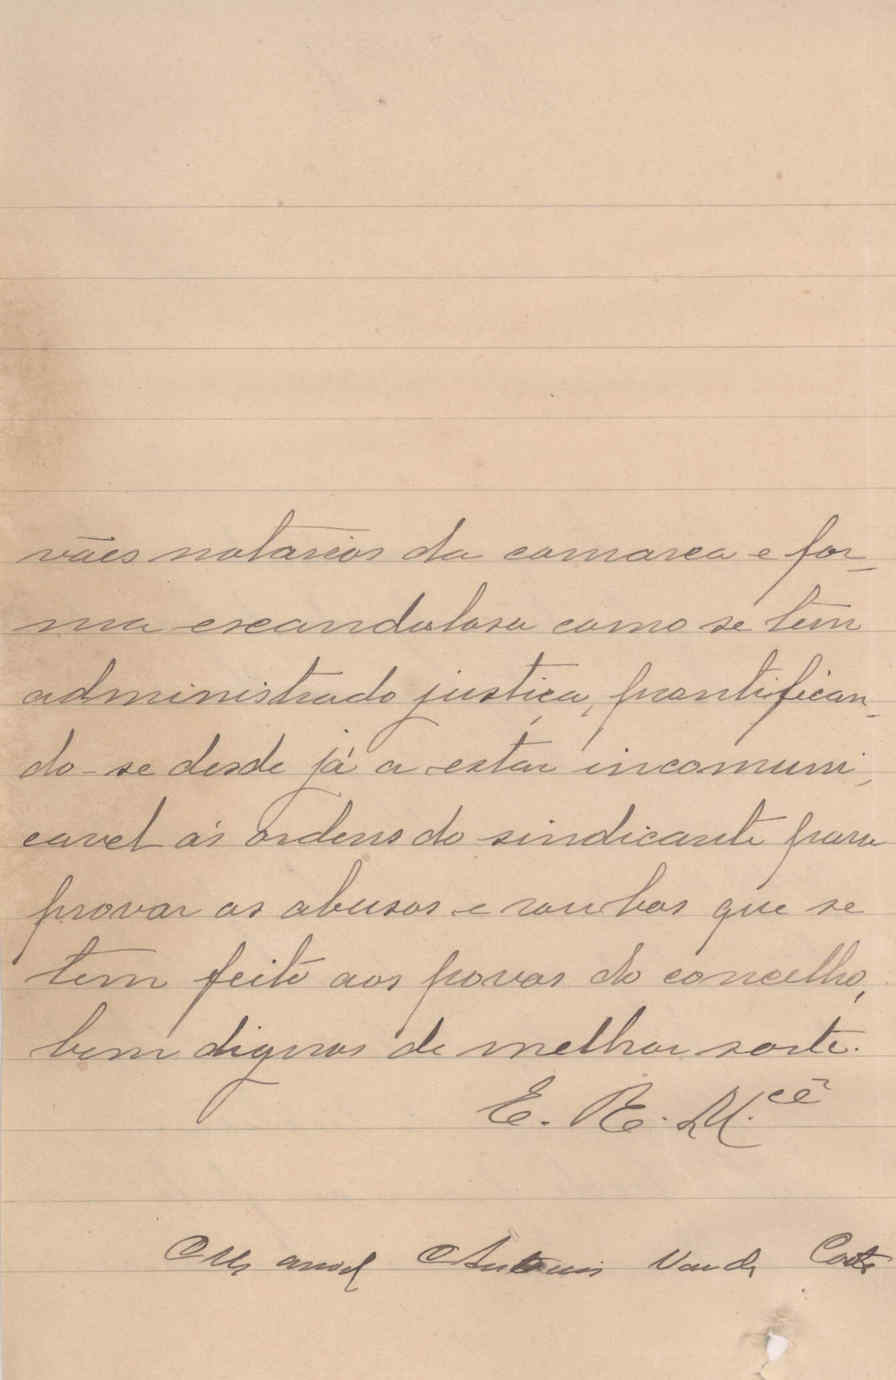 vães notarios da comarca e for-
ma escandalosa como se tem
administrado justiça, prontifican-
do-se desde já a estar incomuni-
cavel ás ordens do sindicante para
provar os abusos e roubos que se
tem feito aos povos do concelho,
bem dignos de melhor sorte.
E. R. M.cê
Manoel Antonio Costa